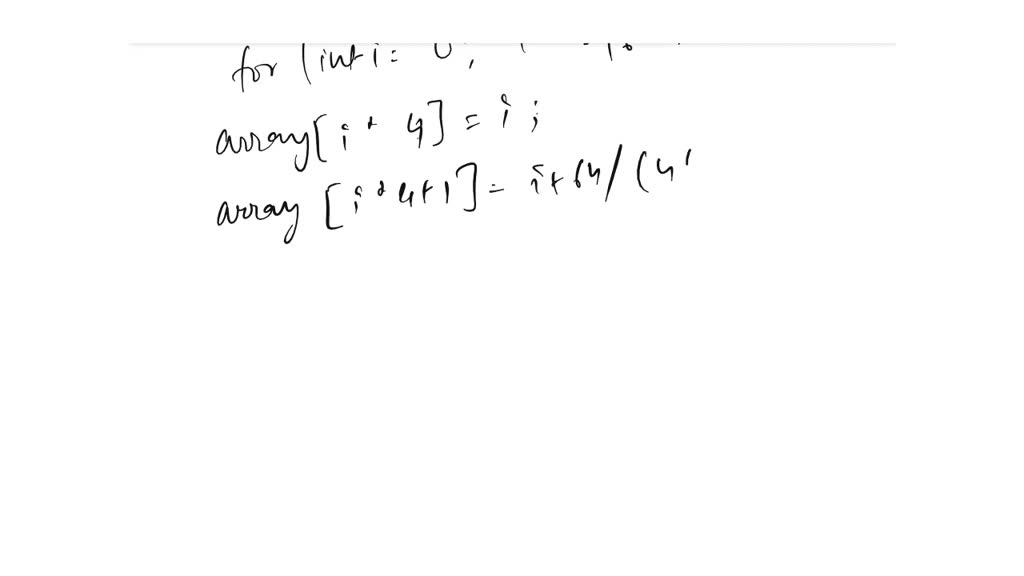 for (int i = 0;
array[i * 4] = i ;
array [i * 4+1] = i+64/(4